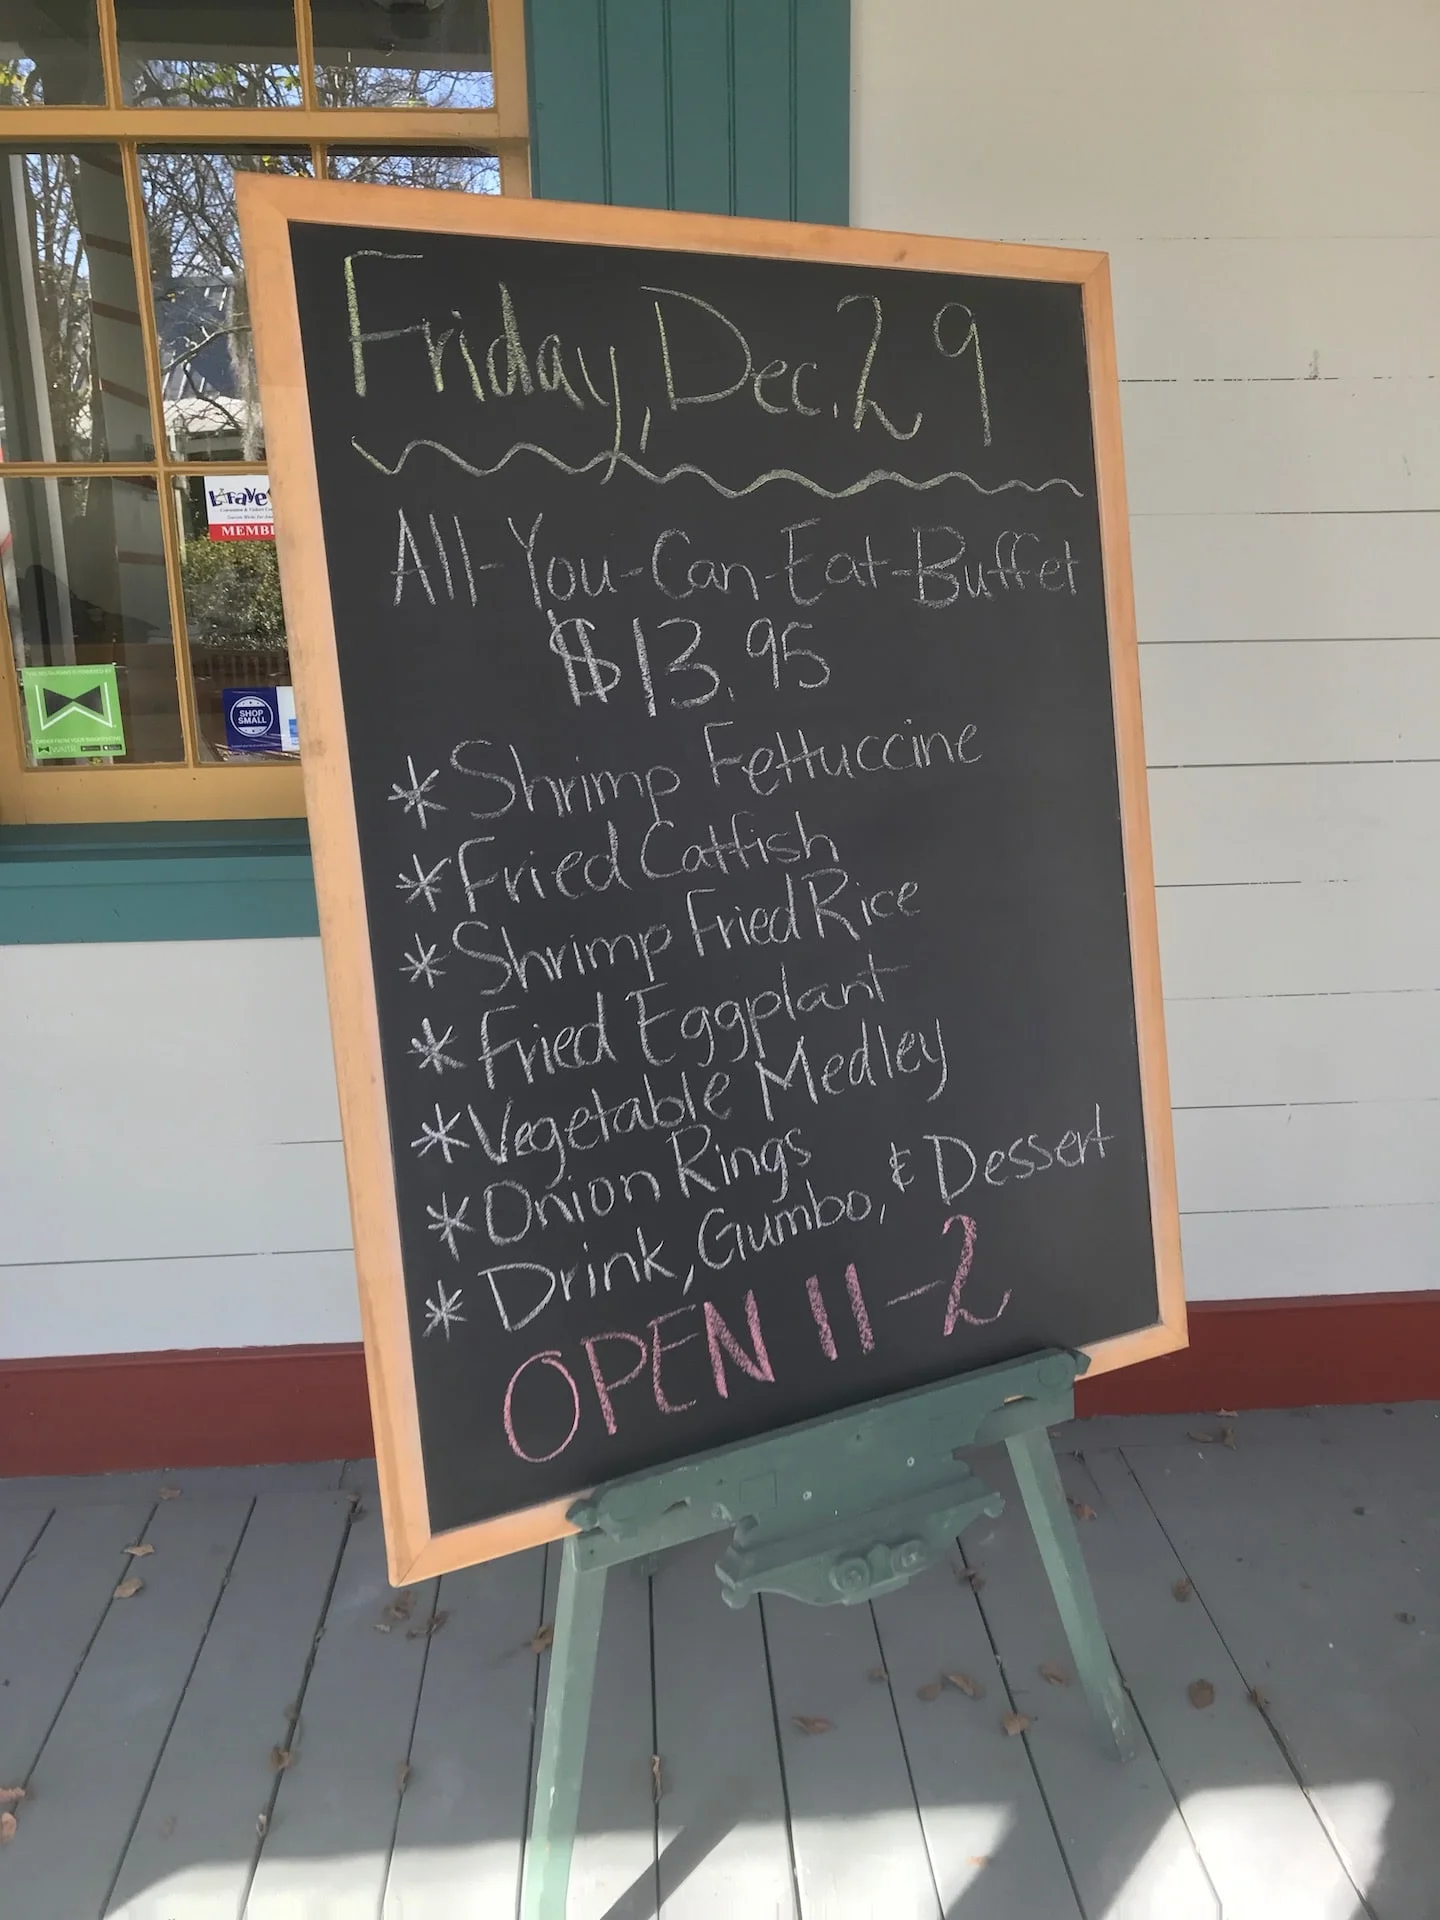 Friday, Dec. 29
All-You-Can-Eat-Buffet
$13.95
* Shrimp Fettuccine
* Fried Catfish
* Shrimp Fried Rice
* Fried Eggplant
* Vegetable Medley
* Onion Rings
* Drink, Gumbo, & Dessert
OPEN 11-2
Lafaye
MEMB
SHOP
SMALL
WAITR